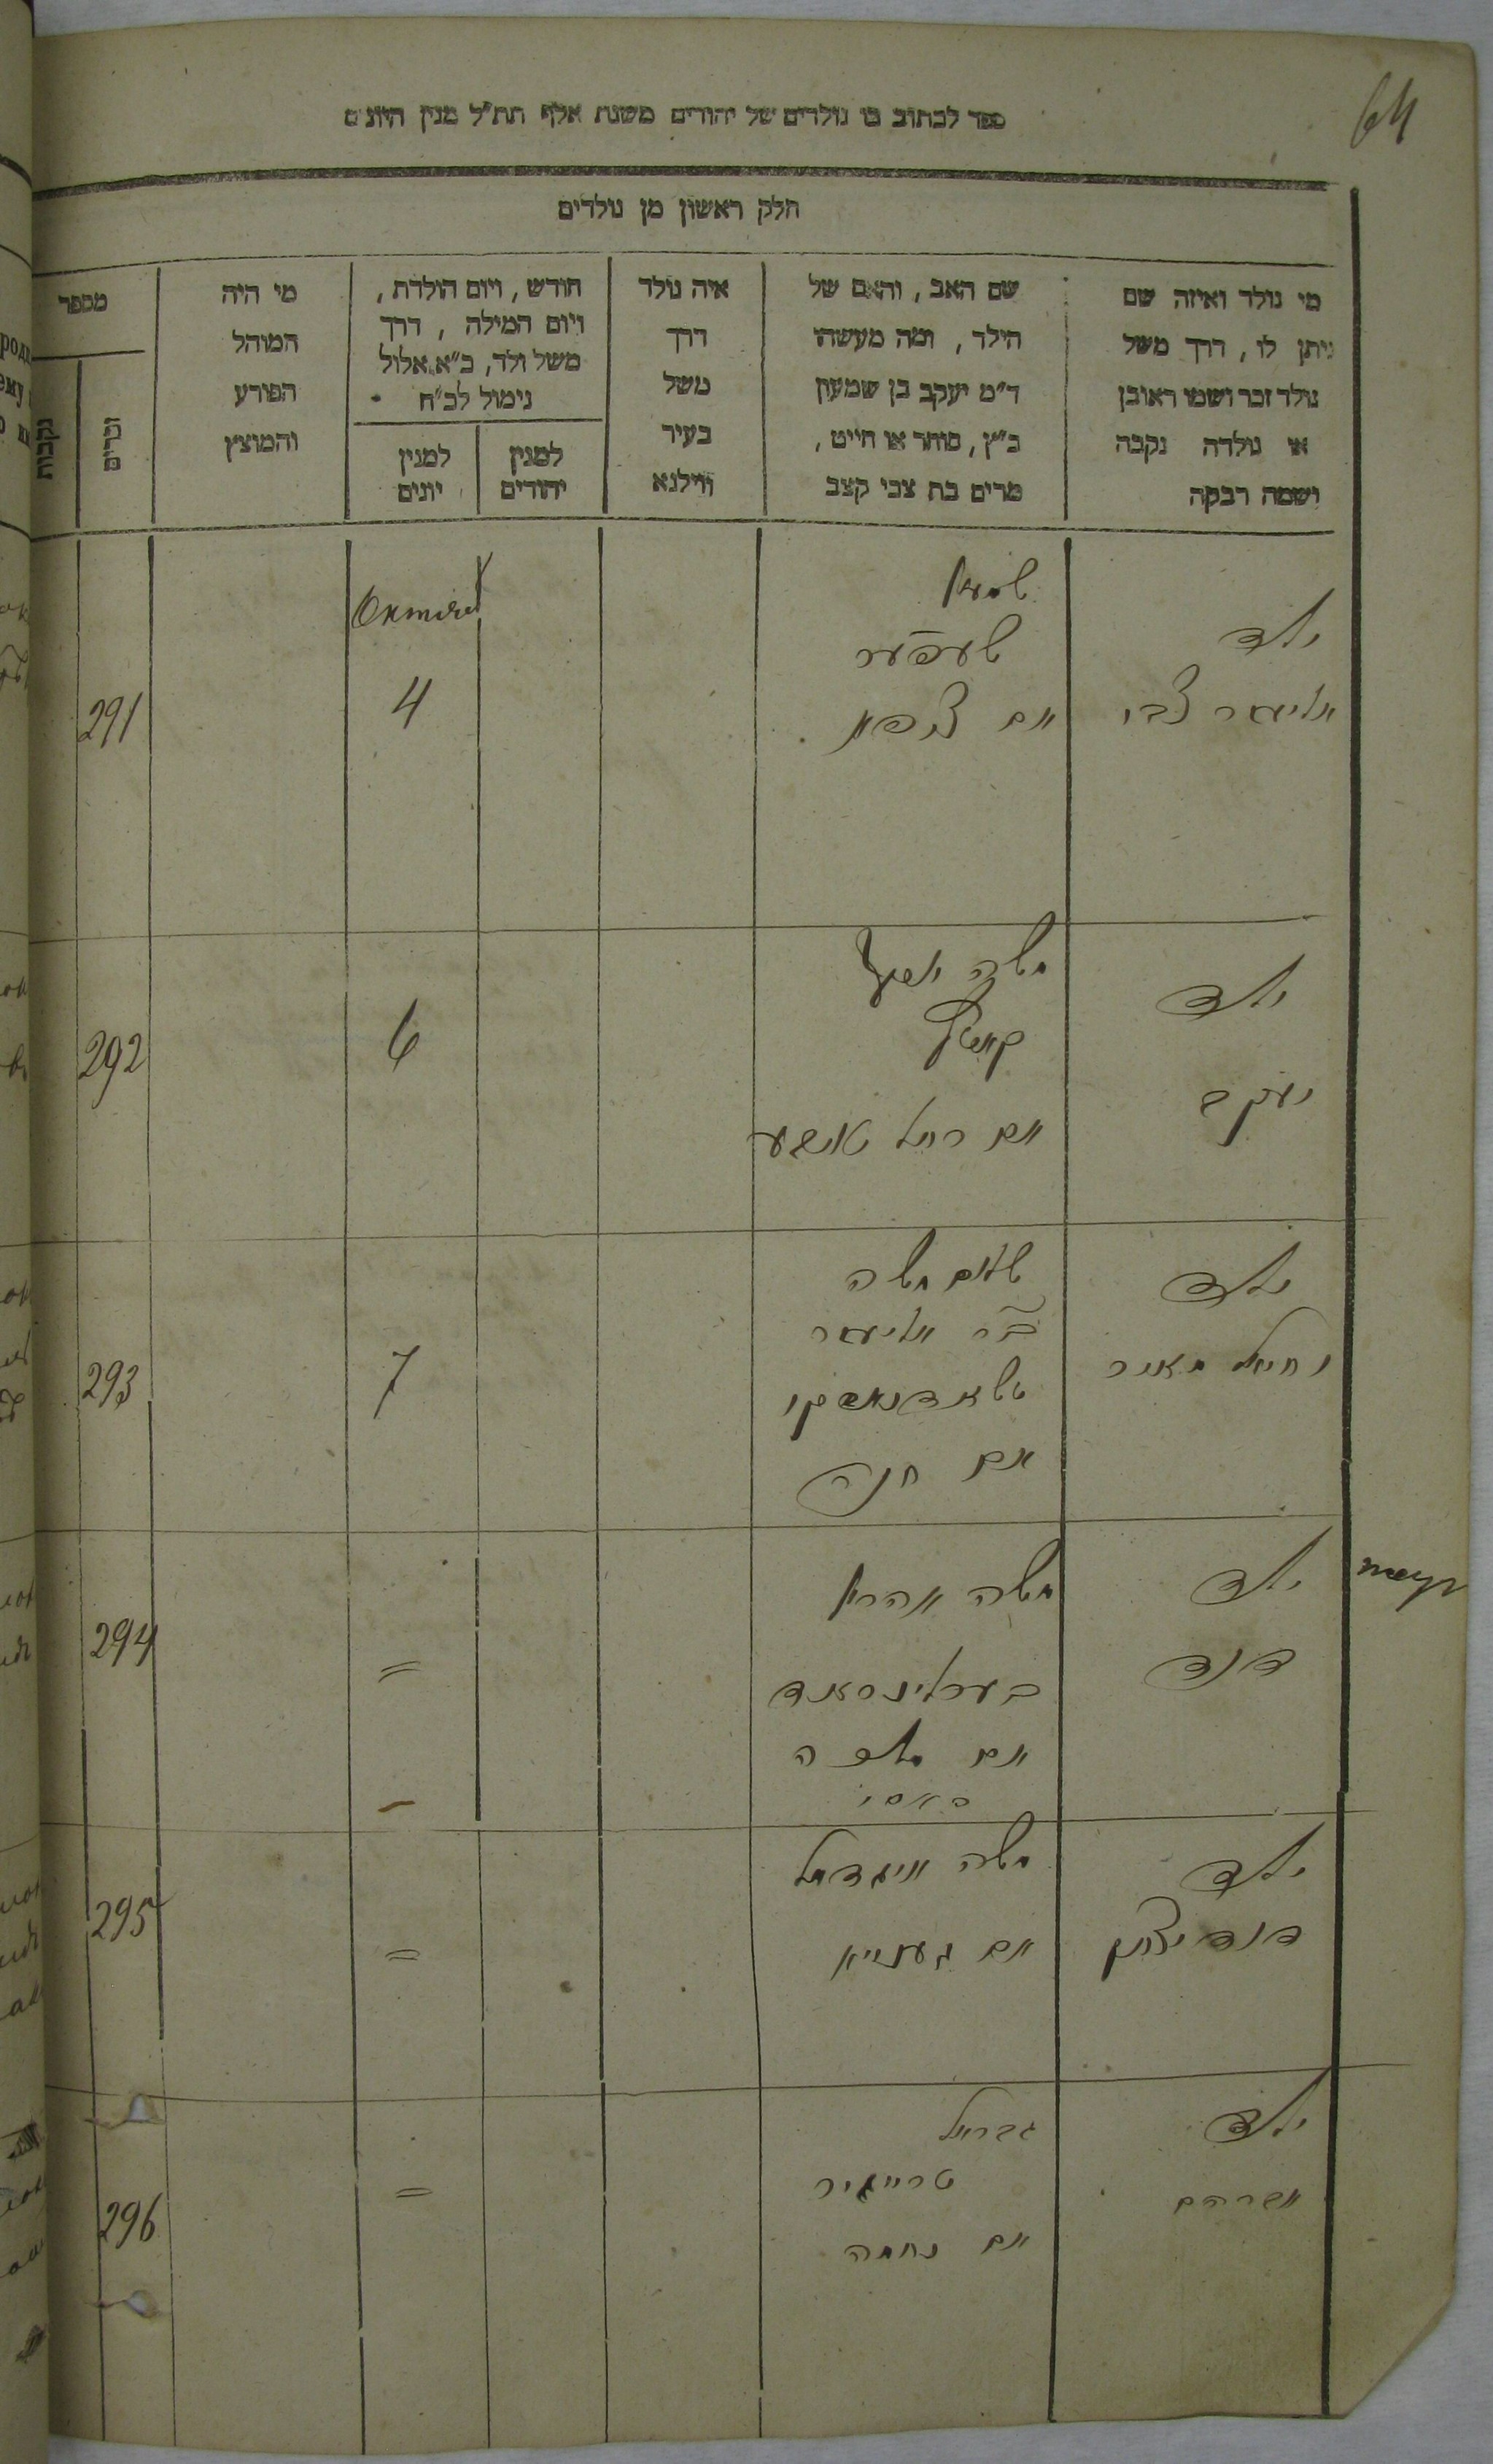 64
ספר לכתוב בו נולדים של יהודים משנת אלף תת״ל מנין היונים
חלק ראשון מן נולדים
מי נולד ואיזה שם
ניתן לו, דרך משל
נולד זכר ושמו ראובן
או נולדה נקבה
ושמה רבקה
שם האב, והאם של
הילד, ומה מעשהו
ד״מ יעקב בן שמעון
כ״ץ, סוחר או חייט,
מרים בת צבי קצב
איה נולד
דרך
משל
בעיר
ווילנא
חודש, ויום הולדת,
ויום המילה, דרך
משל ולד, כ״א אלול
נימול לכ״ח
למנין
יהודים
למנין
יונים
מי היה
המוהל
הפורע
והמוצץ
מספר
זכרים
נקבות
ילד
אליעזר צבי
שמעון
שעפער
אם ציפא
4
291
ילד
יעקב
משה יוסף
אם רחל
6
292
ילד
יחיאל מאיר
שלום משה
ב״ר אליעזר
אם חנה
7
293
ילד
דוד
משה אהרון
בערלינראנד
אם מלכה
=
294
ילד
דוד יצחק
משה
אם גענייא
=
295
ילד
אברהם
גבריאל
אם נחמה
=
296